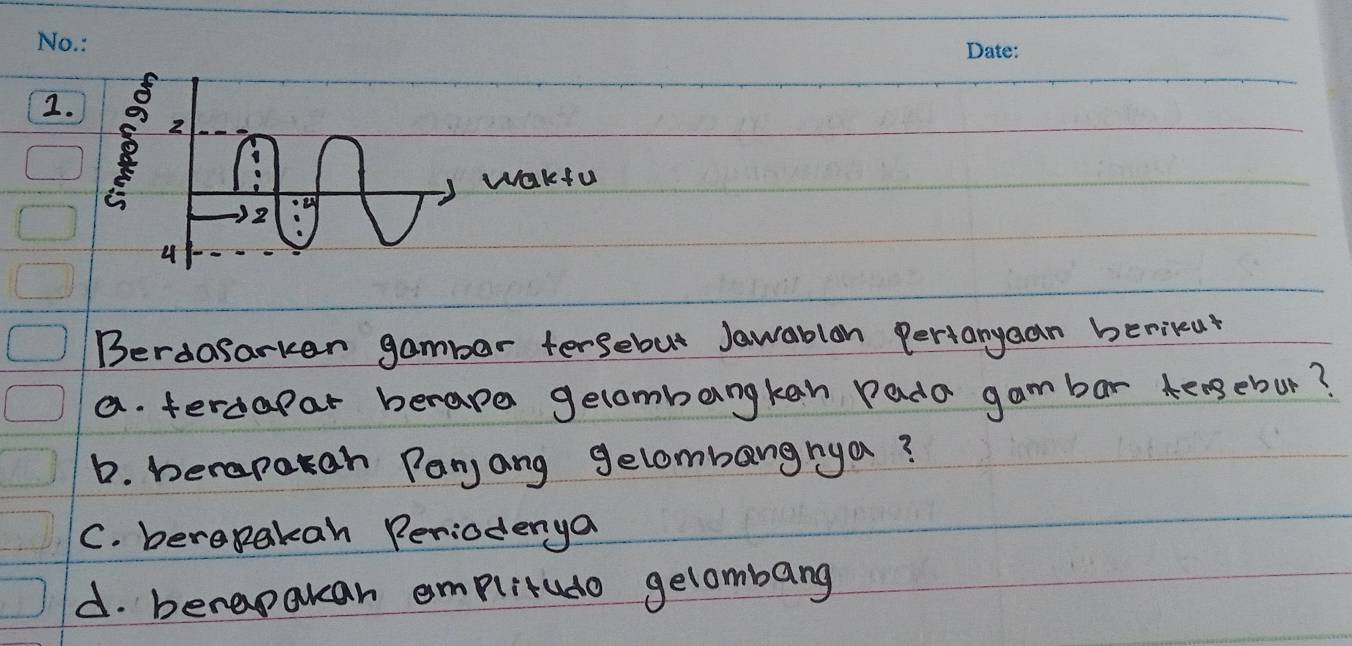 No.:
Date:
1.
Simpangan
2
waktu
2
4
4
Berdasarkan gambar tersebut Jawablan Pertanyaan berikut
a. terdapat berapa gelombangkah Pada gambar tersebut?
b. berapakah Panjang gelombangnya?
c. berapakah Periodenya
d. berapakah amplitudo gelombang